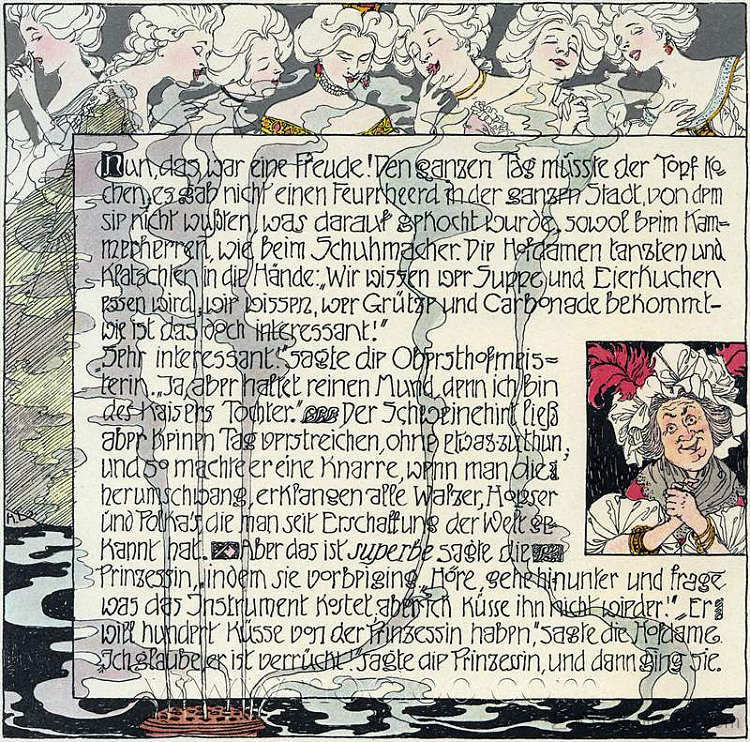 Nun, das war eine Freude! Den ganzen Tag müsste der Topf ko-
chen, es gab nicht einen Feuerheerd in der ganzen Stadt, von dem
sie nicht wußten, was darauf gekocht wurde, sowol beim Kam-
merherren, wie beim Schuhmacher. Die Hofdamen tanzten und
klatschten in die Hände: „Wir wissen wer Suppe und Eierkuchen
essen wird, wir wissen, wer Grütze und Carbonade bekommt-
wie ist das doch interessant!"
„Sehr interessant!" sagte die Obersthofmeis-
terin. „Ja, aber haltet reinen Mund, denn ich bin
des Kaisers Tochter." Der Schweinehirt ließ
aber keinen Tag verstreichen, ohne etwas zu thun,
und so machte er eine Knarre, wenn man die
herumschwang, erklangen alle Walzer, Hopser
und Polka's, die man seit Erschaffung der Welt ge-
kannt hat. Aber das ist superbe sagte die
Prinzessin, indem sie vorbeiging. „Höre, gehe hinunter und frage
was das Instrument kostet, aber ich küsse ihn nicht wieder!" „Er
will hundert Küsse von der Prinzessin haben," sagte die Hofdame.
„Ich glaube, er ist verrückt!" sagte die Prinzessin, und dann ging sie.